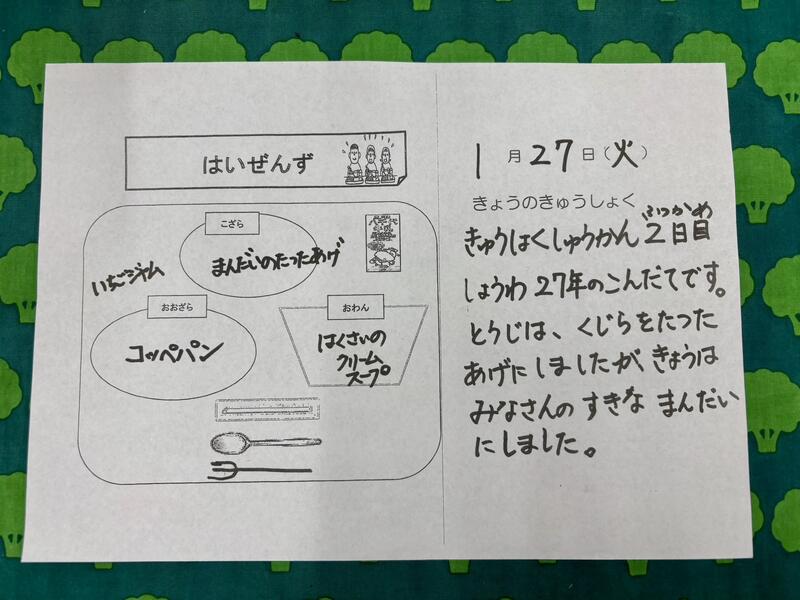 はいぜんず
こざら
まんだいのたつたあげ
いちごジャム
おおざら
コッペパン
おわん
はくさいの
クリーム
スープ
1月27日(火)
きょうのきゅうしょく
きゅうはくしゅうかん2日目
しょうわ27年のこんだてです。
とうじは、くじらをたつた
あげにしましたが、きょうは
みなさんのすきなまんだい
にしました。